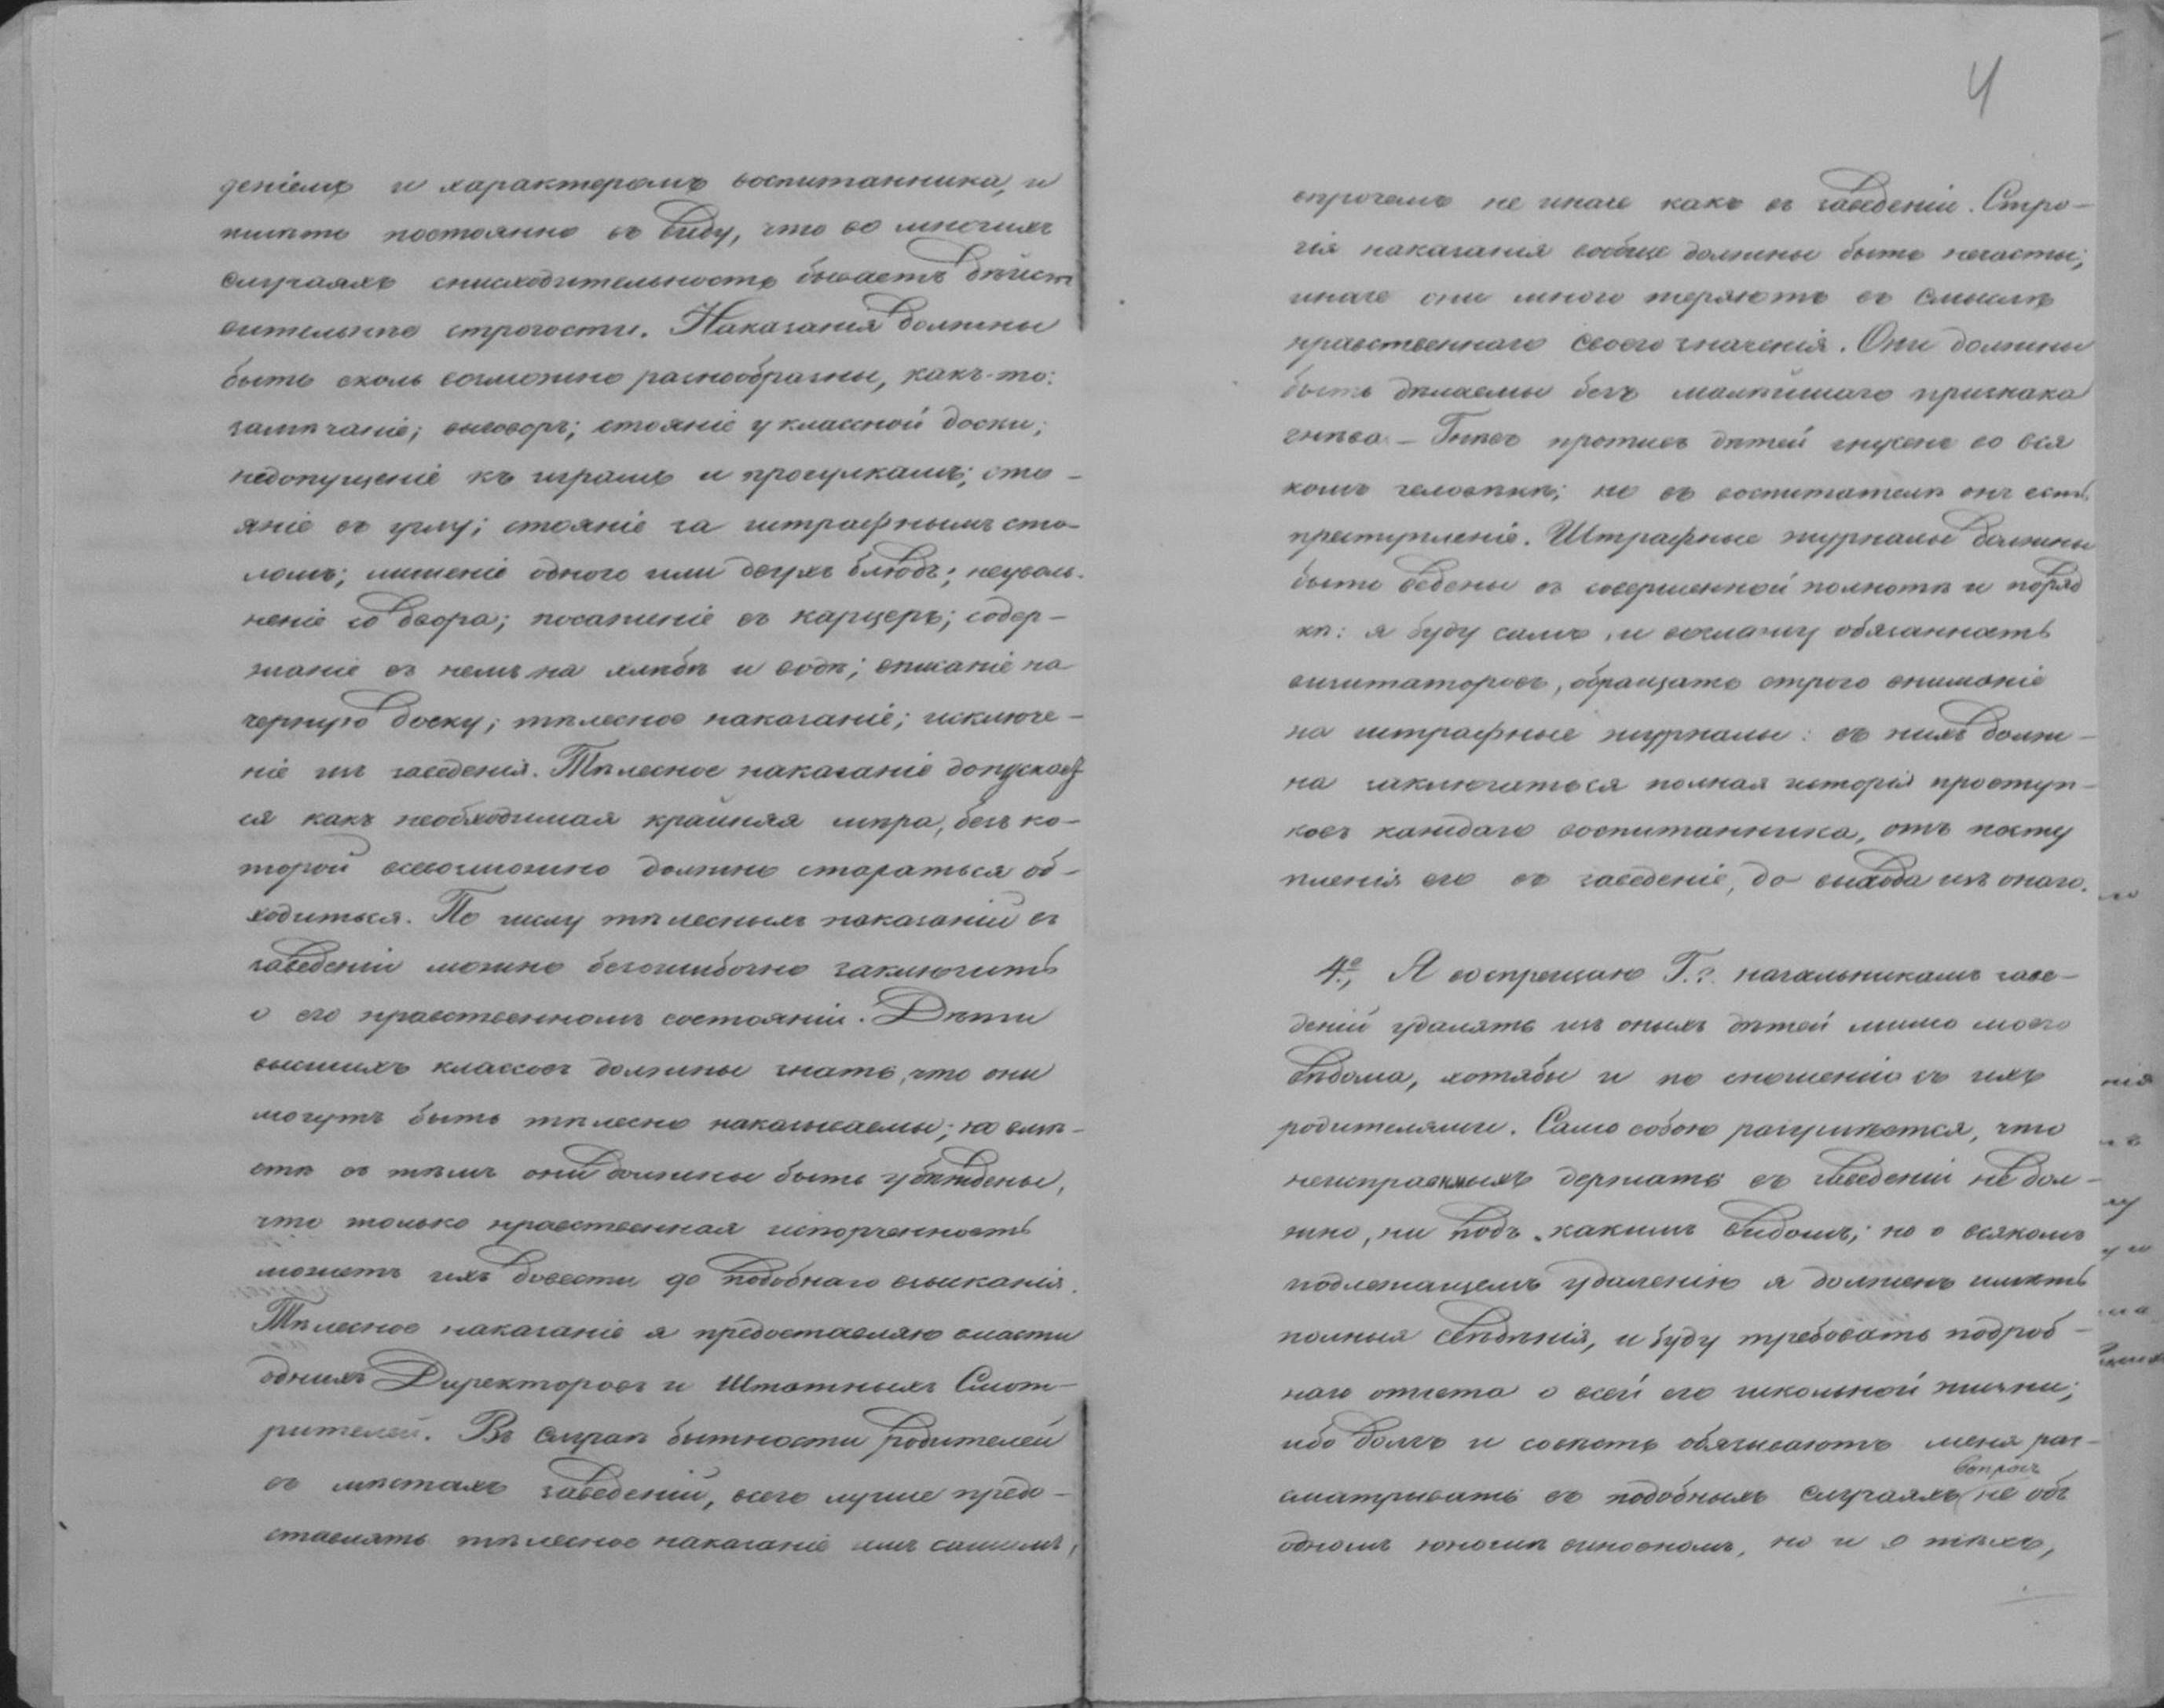 деніемъ и характеромъ воспитанника, и
имѣть постоянно въ виду, что во многихъ
случаяхъ снисходительность бываетъ дѣйст
вительнѣе строгости. Наказанія должны
быть сколь возможно разнообразны, какъ-то:
замѣчаніе; выговоръ; стояніе у классной доски;
недопущеніе къ играмъ и прогулкамъ; сто-
яніе въ углу; стояніе за штрафнымъ сто-
ломъ; лишеніе одного или двухъ блюдъ; неуволь-
неніе со двора; посаженіе въ карцеръ; содер-
жаніе въ немъ на хлѣбѣ и водѣ; вписаніе на
черную доску; тѣлесное наказаніе; исключе-
ніе изъ заведенія. Тѣлесное наказаніе допускает
ся какъ необходимая крайняя мѣра, безъ ко-
торой всевозможно должно стараться об-
ходиться. По числу тѣлесныхъ наказаній въ
заведеніи можно безошибочно заключить
о его нравственномъ состояніи. Дѣти
высшихъ классовъ должны знать, что они
могутъ быть тѣлесно наказываемы; но вмѣ-
стѣ съ тѣмъ они должны быть убѣждены,
что только нравственная испорченность
можетъ ихъ довести до подобнаго взысканія.
Тѣлесное наказаніе я предоставляю власти
однихъ Директоровъ и Штатныхъ Смот-
рителей. Въ случаѣ бытности родителей
въ мѣстахъ заведеній, всего лучше предо-
ставлять тѣлесное наказаніе имъ самимъ,
4
впрочемъ не иначе какъ въ заведеніи. Стро-
гія наказанія вообще должны быть нечасты;
иначе они много теряютъ въ смыслѣ
нравственнаго своего значенія. Они должны
быть дѣлаемы безъ малѣйшаго признака
гнѣва. — Гнѣвъ противъ дѣтей гнусенъ во вся
комъ человѣкѣ; но въ воспитателѣ онъ есть
преступленіе. Штрафные журналы должны
быть ведены въ совершенной полнотѣ и поряд
кѣ: я буду самъ, и возложу обязанность
визитаторовъ, обращать строго вниманіе
на штрафные журналы: въ нихъ долж-
на заключаться полная исторія проступ-
ковъ каждаго воспитанника, отъ посту
пленія его въ заведеніе, до выхода изъ онаго.
4º, Я воспрещаю Г.г. начальникамъ заве-
деній удалять изъ оныхъ дѣтей мимо моего
вѣдома, хотябы и по сношенію съ ихъ
родителями. Само собою разумѣется, что
неисправимыхъ держать въ заведеніи не дол-
жно, ни подъ какимъ видомъ; но о всякомъ
подлежащемъ удаленію я долженъ имѣть
полныя свѣдѣнія, и буду требовать подроб-
наго отчета о всей его школьной жизни;
ибо долгъ и совѣсть обязываютъ меня раз-
вопросъ
сматривать въ подобныхъ случаяхъ не объ
одномъ юношѣ виновномъ, но и о тѣхъ,